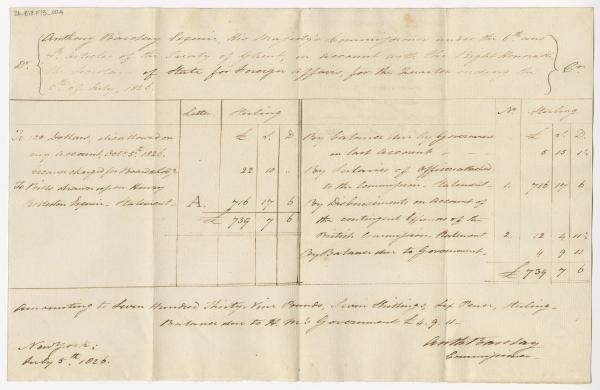 Anthony Barclay Esquire, His Majesty's Commissioner under the 6th and
7th articles of the Treaty of Ghent, in account with the Right Honorable
Dr. the Secretary of State for Foreign affairs, for the Quarter ending the Cr.
5th of July, 1826.
Letter Sterling
£ S. D.
To 100 Dollars, disallowed on
my account, Oct. 5th 1826,
22 10 "
To Bills drawn upon Henry
Rolleston Esquire - Statement - A. 716 17 6
£ 739 7 6
No. Sterling
£ S. D.
By balance due by Government
on last Account - 5 15 1½
By Salaries of Officers attached
to the Commission - Statement - 1. 716 17 6
By Disbursements on Account of
the contingent Expenses of the
British Commission - Statement 2. 12 4 11½
By Balance due to Government - 4 9 11
£ 739 7 6
Amounting to Seven Hundred Thirty Nine Pounds, Seven Shillings, Six Pence, Sterling -
Balance due to H. M's Government £ 4. 9. 11 -
New York;
July 5th. 1826.
Anth Barclay
Commissioner